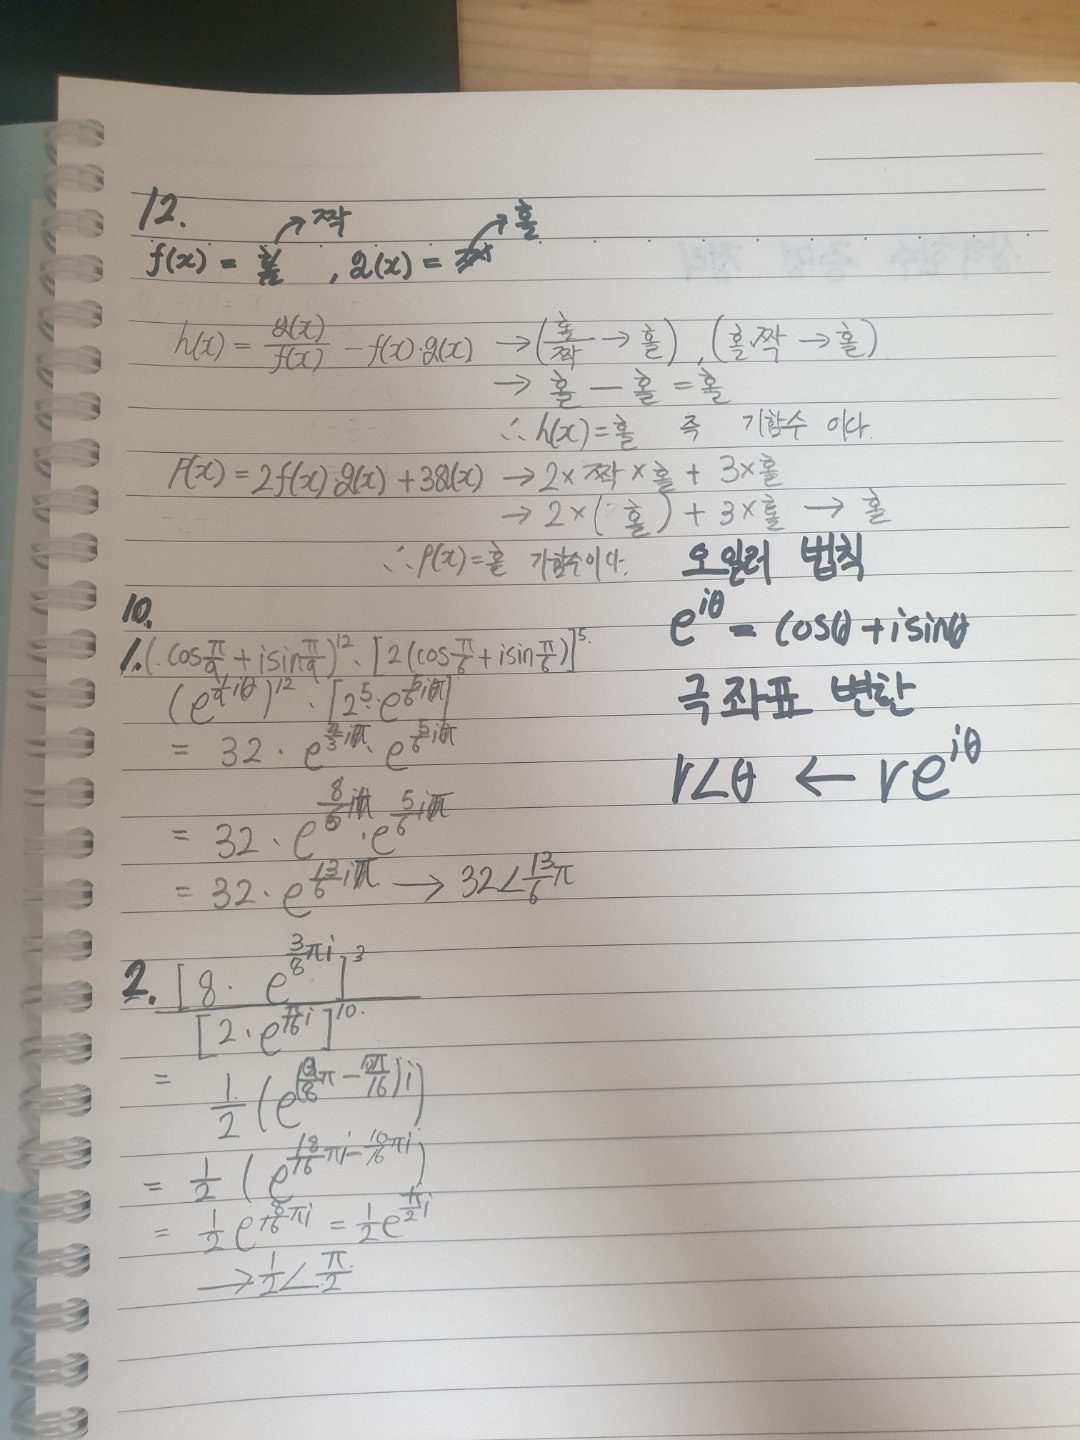 12.
→ 짝 → 홀
f(x) = , g(x) =
h(x) = g(x)/f(x) - f(x)·g(x) → (홀/짝 → 홀), (홀·짝 → 홀)
→ 홀 - 홀 = 홀
∴ h(x) = 홀 즉 기함수 이다.
P(x) = 2f(x)g(x) + 3g(x) → 2×짝×홀 + 3×홀
→ 2×(홀) + 3×홀 → 홀
∴ P(x) = 홀 기함수이다.
오일러 법칙
e^{iθ} = cosθ + isinθ
극좌표 변환
r∠θ ← re^{iθ}
10.
1. (cos π/9 + isin π/9)^12 · [2(cos π/6 + isin π/6)]^5
= 32 ·
= 32 · e^{8/6 iπ} · e^{5/6 iπ}
= 32 · e^{13/6 iπ} → 32∠13/6 π
2. [8 · e^{3/8 πi}]^3 / [2 · e^{π/16 i}]^10
=
1/2
= 1/2 (e^{18/16 πi - 10/16 πi})
= 1/2 e^{8/16 πi} = 1/2 e^{π/2 i}
→ 1/2 ∠ π/2